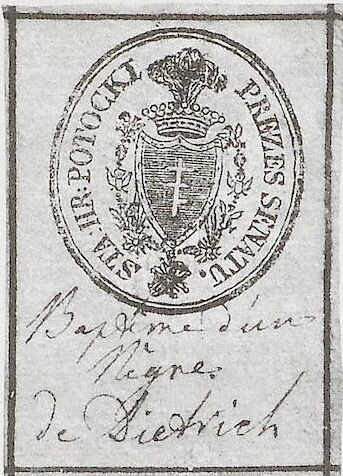 STA·HR·POTOCKI PREZES SENATU.
Baptême d'un
Nègre
de Dietrich